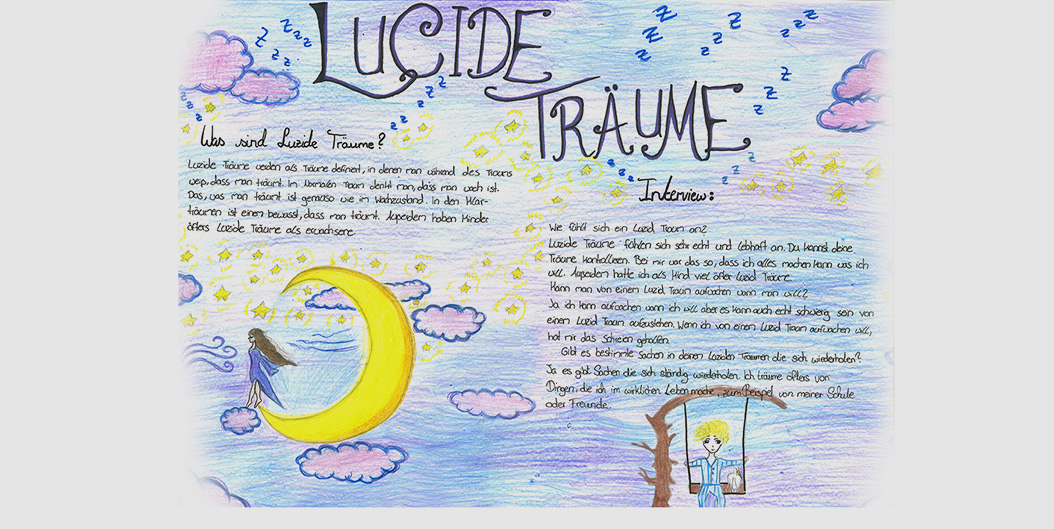 LUCIDE
TRÄUME
Was sind Luzide Träume?
Luzide Träume werden als Träume definiert, in denen man während des Traums
weiß, dass man träumt. Im Normalen Traum denkt man, dass man wach ist.
Das, was man träumt ist genauso wie im Wachzustand. In den Klar-
träumen ist einem bewusst, dass man träumt. Außerdem haben Kinder
öfters Luzide Träume als erwachsene
Interview:
Wie fühlt sich ein Luzid Traum an?
Luzide Träume fühlen sich sehr echt und lebhaft an. Du kannst deine
Träume kontrollieren. Bei mir war das so, dass ich alles machen kann was ich
will. Außerdem hatte ich als Kind viel öfter Luzid Träume.
Kann man von einem Luzid Traum aufwachen wann man will?
Ja ich kann aufwachen wann ich will aber es kann auch echt schwierig sein von
einem Luzid Traum aufzustehen. Wenn ich von einem Luzid Traum aufwachen will,
hat mir das Schreien geholfen.
Gibt es bestimmte Sachen in deinen Luziden Träumen die sich wiederholen?
Ja es gibt Sachen die sich ständig wiederholen. Ich träume öfters von
Dingen, die ich im wirklichen Leben mache, zum Beispiel von meiner Schule
oder Freunde.